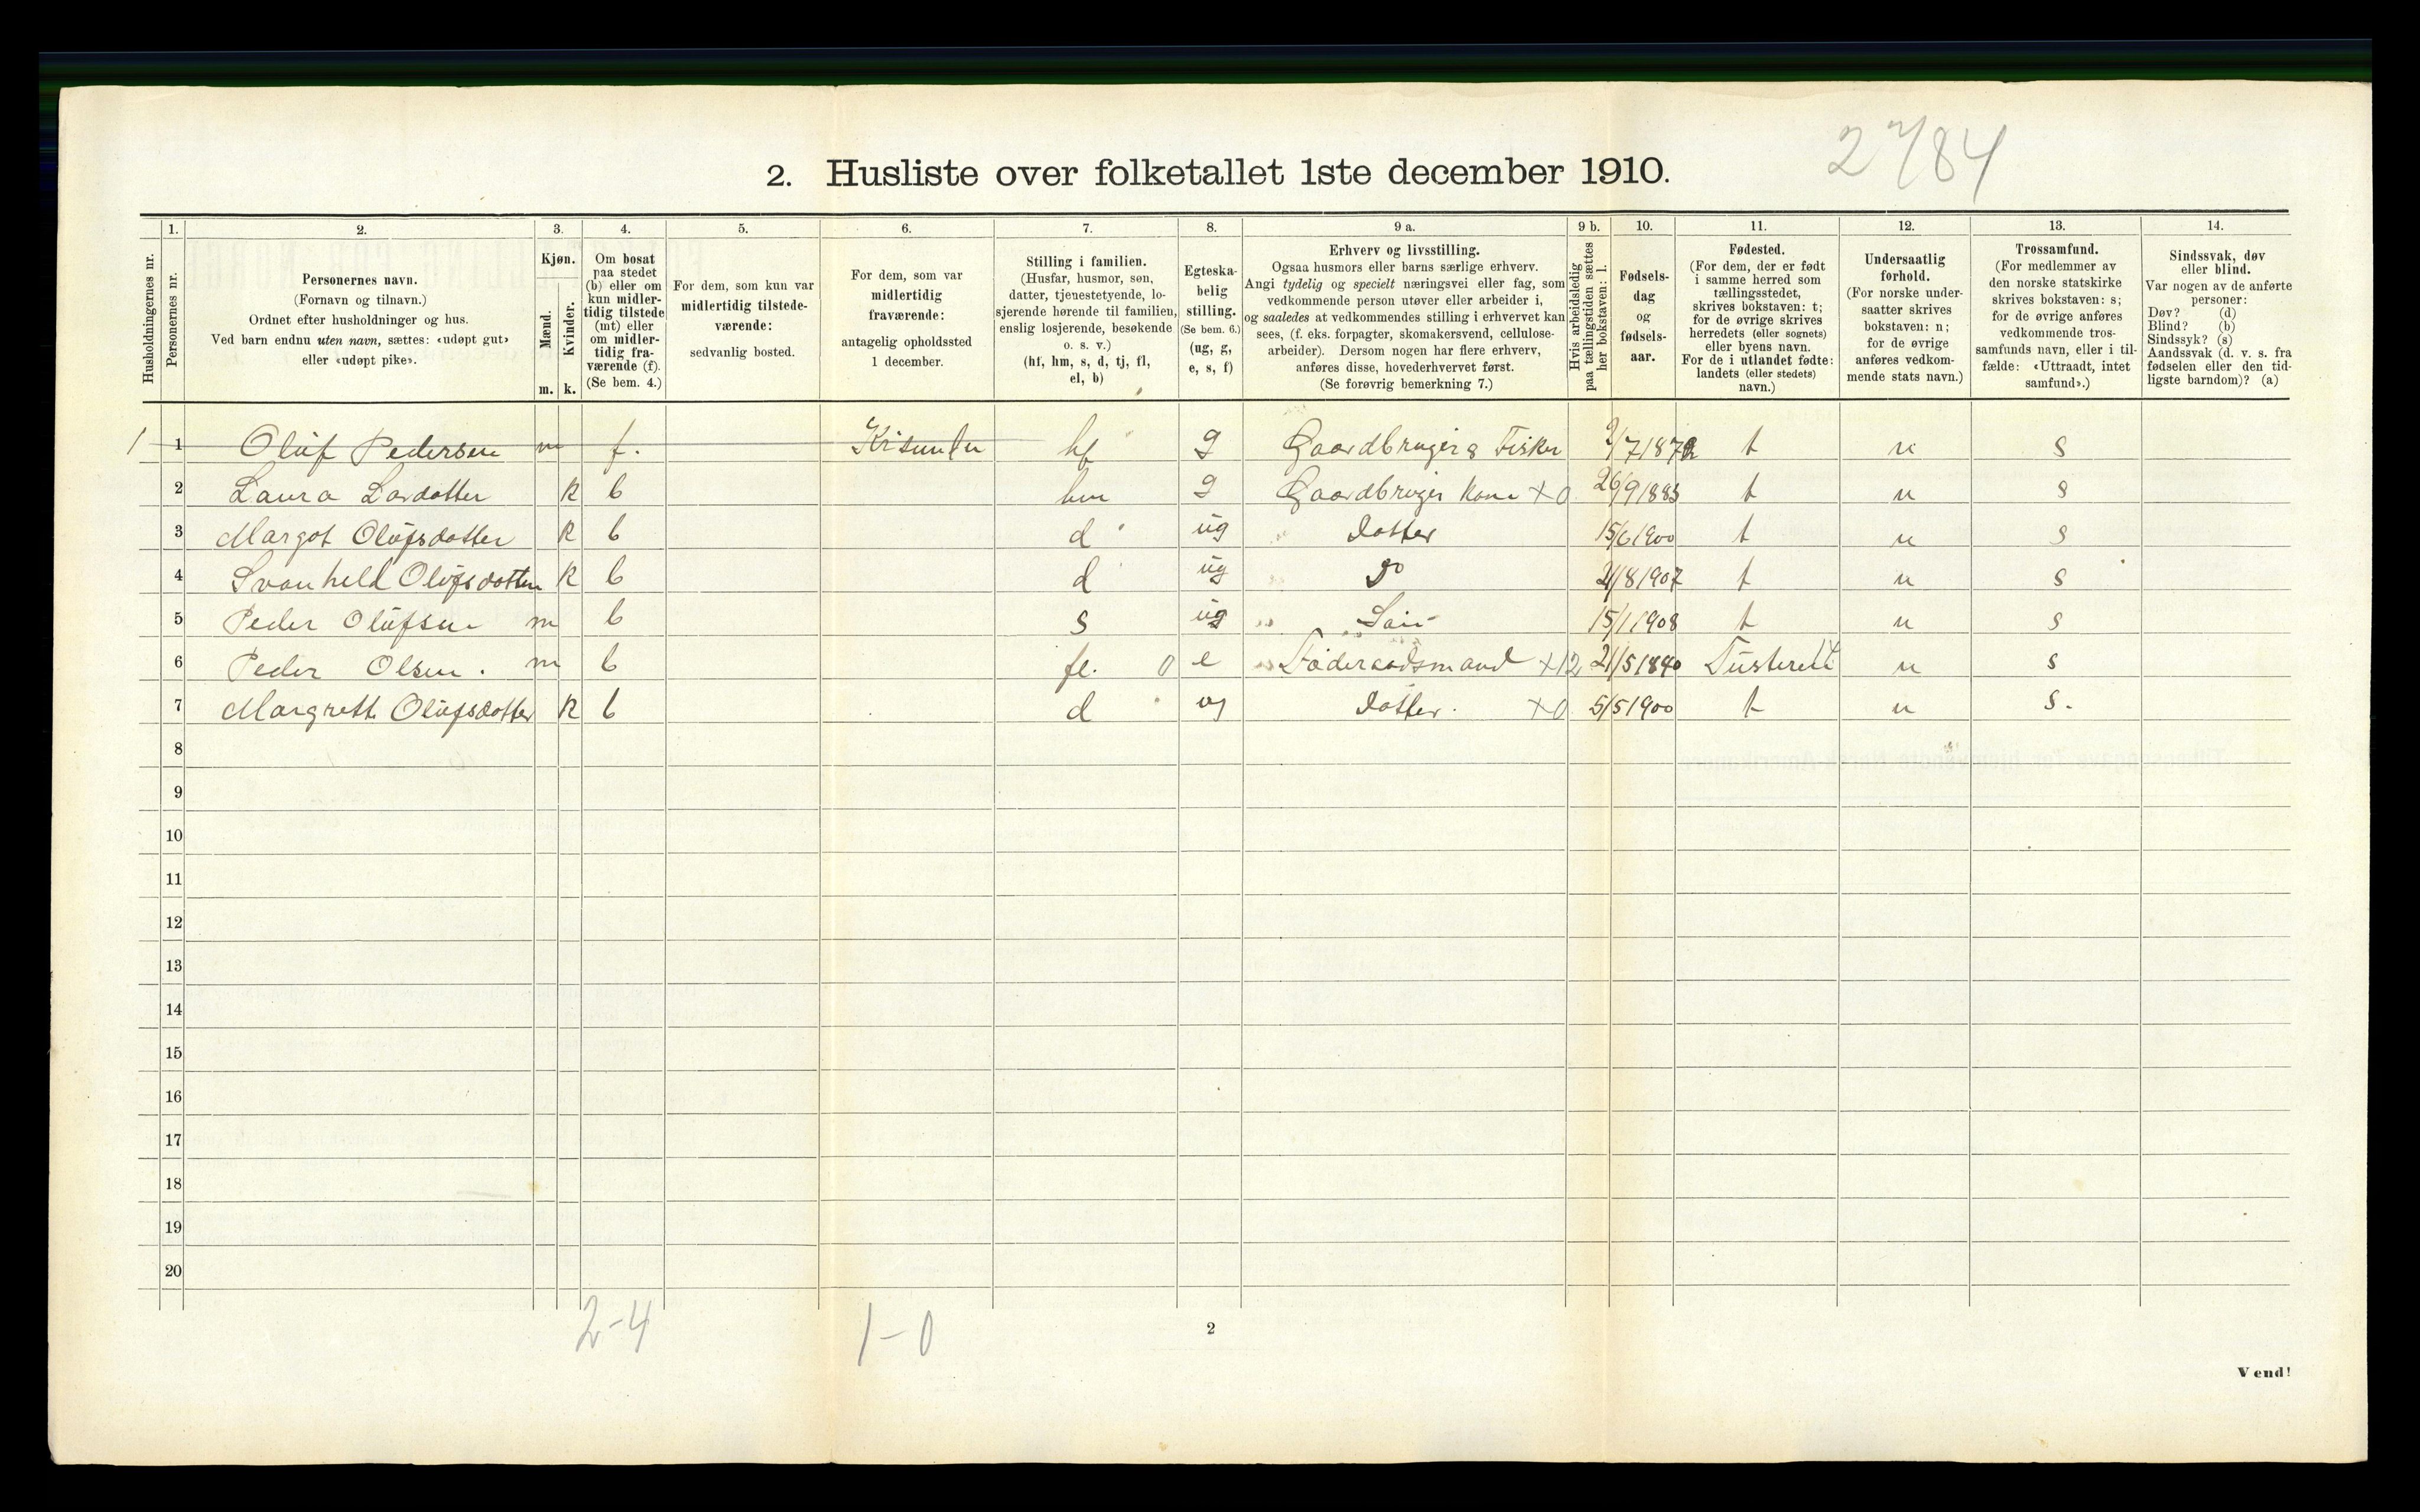 2784
2. Husliste over folketallet 1ste december 1910.
Husholdningernes nr.
1. Personernes nr.
2. Personernes navn.
(Fornavn og tilnavn.)
Ordnet efter husholdninger og hus.
Ved barn endnu uten navn, sættes: «udøpt gut»
eller «udøpt pike».
3. Kjøn.
Mænd. m.
Kvinder. k.
4. Om bosat
paa stedet
(b) eller om
kun midler-
tidig tilstede
(mt) eller
om midler-
tidig fra-
værende (f).
(Se bem. 4.)
5. For dem, som kun var
midlertidig tilstede-
værende:
sedvanlig bosted.
6. For dem, som var
midlertidig
fraværende:
antagelig opholdssted
1 december.
7. Stilling i familien.
(Husfar, husmor, søn,
datter, tjenestetyende, lo-
sjerende hørende til familien,
enslig losjerende, besøkende
o. s. v.)
(hf, hm, s, d, tj, fl,
el, b)
8. Egteska-
belig
stilling.
(Se bem. 6.)
(ug, g,
e, s, f)
9 a. Erhverv og livsstilling.
Ogsaa husmors eller barns særlige erhverv.
Angi tydelig og specielt næringsvei eller fag, som
vedkommende person utøver eller arbeider i,
og saaledes at vedkommendes stilling i erhvervet kan
sees, (f. eks. forpagter, skomakersvend, cellulose-
arbeider). Dersom nogen har flere erhverv,
anføres disse, hovederhvervet først.
(Se forøvrig bemerkning 7.)
9 b. Hvis arbeidsledig
paa tællingstiden sættes
her bokstaven: l.
10. Fødsels-
dag
og
fødsels-
aar.
11. Fødested.
(For dem, der er født
i samme herred som
tællingsstedet,
skrives bokstaven: t;
for de øvrige skrives
herredets (eller sognets)
eller byens navn.
For de i utlandet fødte:
landets (eller stedets)
navn.)
12. Undersaatlig
forhold.
(For norske under-
saatter skrives
bokstaven: n;
for de øvrige
anføres vedkom-
mende stats navn.)
13. Trossamfund.
(For medlemmer av
den norske statskirke
skrives bokstaven: s;
for de øvrige anføres
vedkommende tros-
samfunds navn, eller i til-
fælde: «Uttraadt, intet
samfund».)
14. Sindssvak, døv
eller blind.
Var nogen av de anførte
personer:
Døv? (d)
Blind? (b)
Sindssyk? (s)
Aandssvak (d. v. s. fra
fødselen eller den tid-
ligste barndom)? (a)
1 1 Oluf Pedersen m f. hf g Gaardbruger & Fisker t n s
2 Laura Lardatter k b hm g Gaardbruger Kone +0 26/9 1883 t n s
3 Margot Olufsdatter k b d ug datter 15/6 1900 t n s
4 Svanheld Olufsdatter k b d ug Do 21/8 1907 t n s
5 Peder Olufsen m b s ug 15/1 1908 t n s
6 Peder Olsen. m b fl. 0 e Føderaadsmand +12 21/5 1840 n s
7 Margrethe Olufsdatter k b d ug datter. +0 5/5 1900 t n s.
8
9
10
11
12
13
14
15
16
17
18
19
20
2-4 1-0
2
Vend!